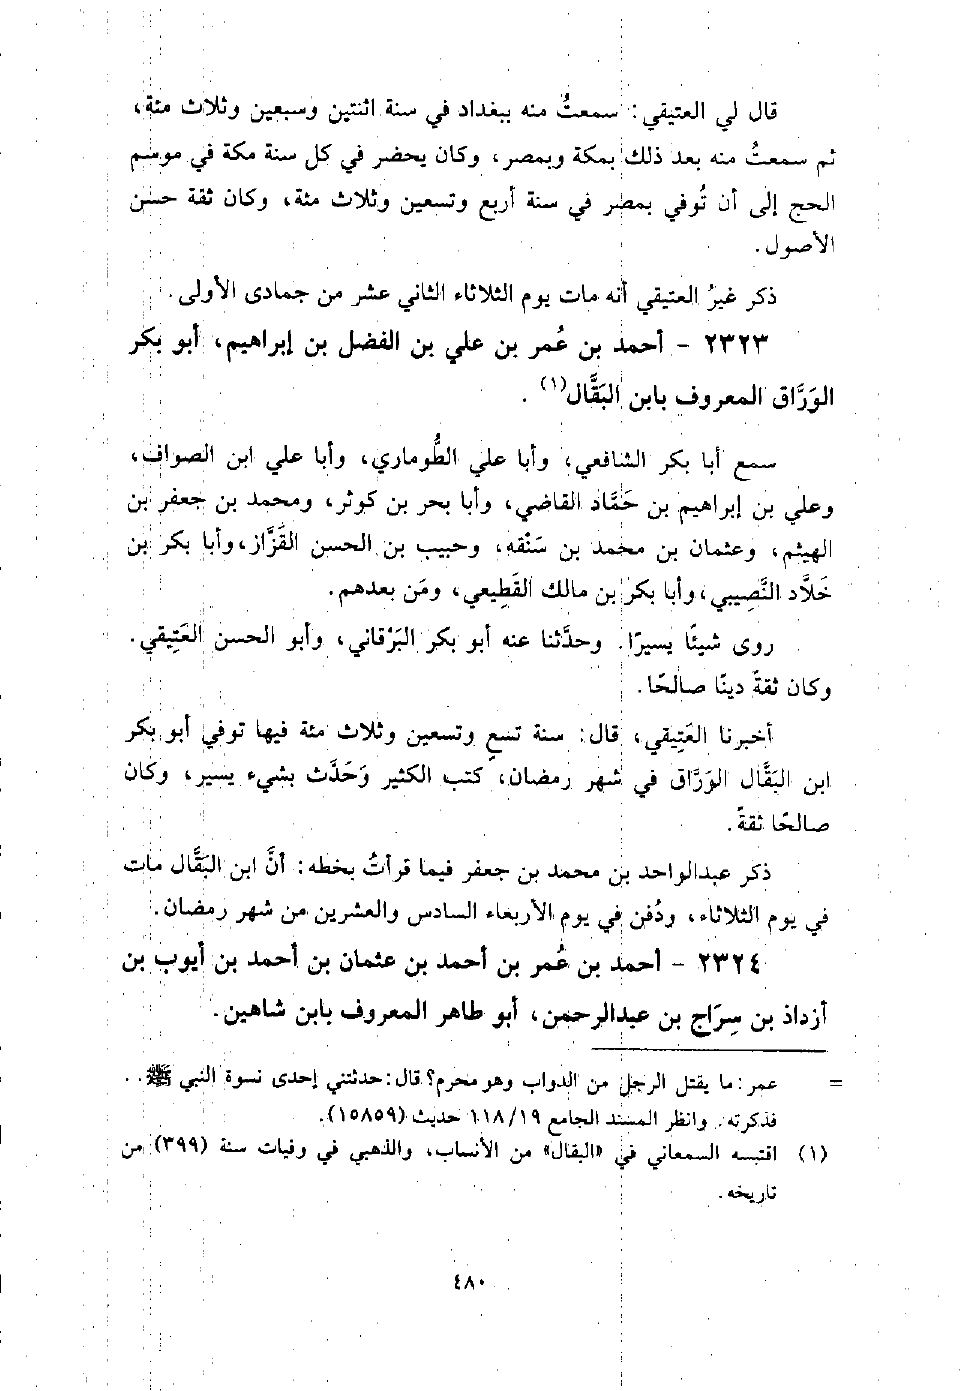 قال لي العتيقي: سمعتُ منه ببغداد في سنة اثنتين وسبعين وثلاث مئة،
ثم سمعتُ منه بعد ذلك بمكة وبمصر، وكان يحضر في كل سنة مكة في موسم
الحج إلى أن تُوفي بمصر في سنة أربع وتسعين وثلاث مئة، وكان ثقة حسن
الأصول.
ذكر غيرُ العتيقي أنه مات يوم الثلاثاء الثاني عشر من جمادى الأولى.
٢٣٢٣ - أحمد بن عُمر بن علي بن الفضل بن إبراهيم، أبو بكر
الوَرَّاق المعروف بابن البَقَّال(١).
سمع أبا بكر الشافعي، وأبا علي الطُّوماري، وأبا علي ابن الصواف،
وعلي بن إبراهيم بن حَمَّاد القاضي، وأبا بحر بن كوثر، ومحمد بن جعفر بن
الهيثم، وعثمان بن محمد بن سَنْقه، وحبيب بن الحسن القَزَّاز، وأبا بكر بن
خَلَّاد النَّصِيبي، وأبا بكر بن مالك القَطِيعي، ومَن بعدهم.
روى شيئًا يسيرًا. وحدَّثنا عنه أبو بكر البَرْقاني، وأبو الحسن العَتِيقي.
وكان ثقةً دينًا صالحًا.
أخبرنا العَتِيقي، قال: سنة تسعٍ وتسعين وثلاث مئة فيها توفي أبو بكر
ابن البَقَّال الوَرَّاق في شهر رمضان، كتب الكثير وَحَدَّث بشيء يسير، وكان
صالحًا ثقةً.
ذكر عبدالواحد بن محمد بن جعفر فيما قرأتُ بخطه: أنَّ ابن البَقَّال مات
في يوم الثلاثاء، ودُفن في يوم الأربعاء السادس والعشرين من شهر رمضان.
٢٣٢٤ - أحمد بن عُمر بن أحمد بن عثمان بن أحمد بن أيوب بن
أزداذ بن سِرَاج بن عبدالرحمن، أبو طاهر المعروف بابن شاهين.
= عمر: ما يقتل الرجل من الدواب وهو محرم؟ قال: حدثتني إحدى نسوة النبي ﷺ..
فذكرته. وانظر المسند الجامع ١٩/ ١١٨ حديث (١٥٨٥٩).
(١) اقتبسه السمعاني في «البقال» من الأنساب، والذهبي في وفيات سنة (٣٩٩) من
تاريخه.
٤٨٠